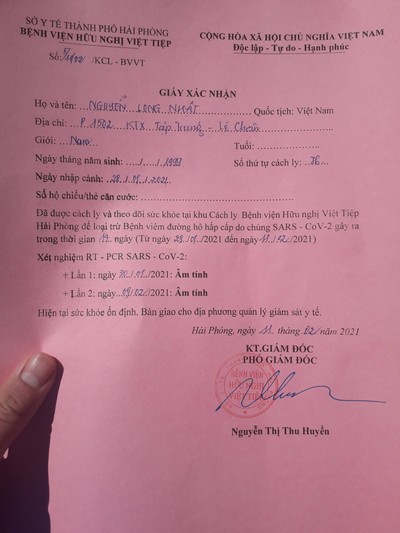 SỞ Y TẾ THÀNH PHỐ HẢI PHÒNG
BỆNH VIỆN HỮU NGHỊ VIỆT TIỆP
Số: /KCL - BVVT
CỘNG HÒA XÃ HỘI CHỦ NGHĨA VIỆT NAM
Độc lập - Tự do - Hạnh phúc
GIẤY XÁC NHẬN
Họ và tên: NGUYỄN LONG NHẤT Quốc tịch: Việt Nam
Địa chỉ: P 1502 KTX Tập Trung - Lê Chân
Giới: Nam Tuổi:
Ngày tháng năm sinh: / / 1993 Số thứ tự cách ly: 76
Ngày nhập cảnh: 28/01/2021
Số hộ chiếu/thẻ căn cước:
Đã được cách ly và theo dõi sức khỏe tại khu Cách ly Bệnh viện Hữu nghị Việt Tiệp
Hải Phòng để loại trừ Bệnh viêm đường hô hấp cấp do chủng SARS - CoV-2 gây ra
trong thời gian ngày (Từ ngày 29/01/2021 đến ngày 11/02/2021)
Xét nghiệm RT - PCR SARS - CoV-2:
+ Lần 1: ngày /01/2021: Âm tính
+ Lần 2: ngày 09/02/2021: Âm tính
Hiện tại sức khỏe ổn định. Bàn giao cho địa phương quản lý giám sát y tế.
Hải Phòng, ngày 11 tháng 02 năm 2021
KT.GIÁM ĐỐC
PHÓ GIÁM ĐỐC
BỆNH VIỆN
HỮU NGHỊ
VIỆT TIỆP
Nguyễn Thị Thu Huyền